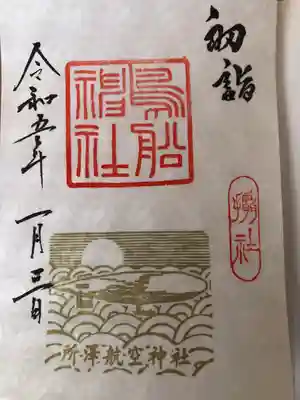 初詣
攝社
鳥船神社
令和五年 一月三日
所澤航空神社